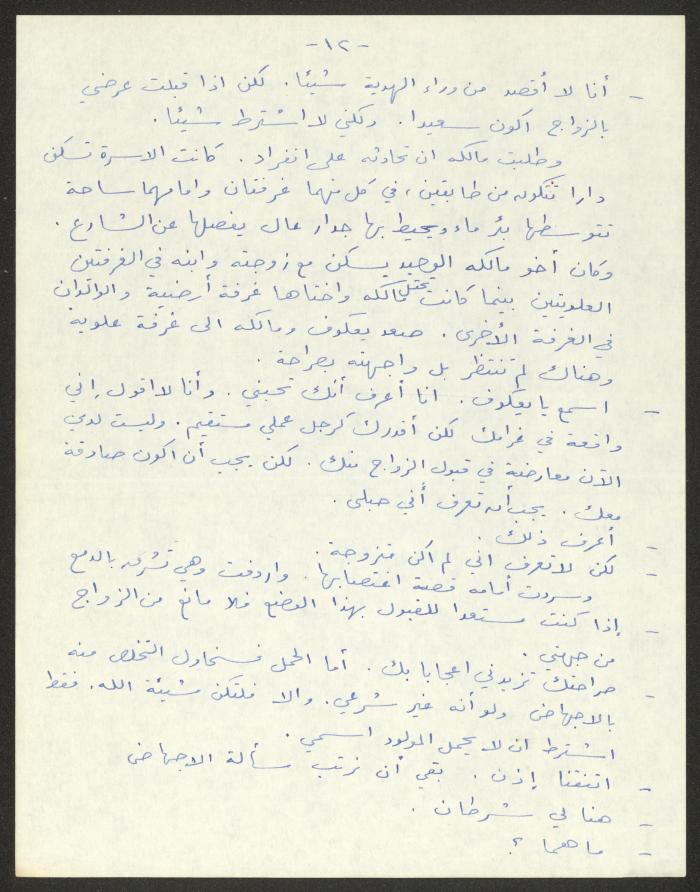 -١٢-
- أنا لا أقصد من وراء الهدية شيئا. لكن اذا قبلت عرضي
بالزواج اكون سعيدا. ولكني لا اشترط شيئا.
وطلبت مالكه ان تحادثه على انفراد. كانت الاسرة تسكن
دارا تتكون من طابقين، في كل منهما غرفتان وامامهما ساحة
تتوسطها بئر ماء ويحيط بها جدار عال يفصلها عن الشارع.
وكان أخو مالكه الوحيد يسكن مع زوجته وابنه في الغرفتين
العلويتين بينما كانت تحتل مالكه واختاها غرفة أرضية والوالدان
في الغرفة الأخرى. صعد يعكوف ومالكه الى غرفة علوية
وهناك لم تنتظر بل واجهته بصراحة.
- اسمع يا يعكوف. انا أعرف أنك تحبني. وأنا لا اقول إني
واقعة في غرامك لكن أقدرك كرجل عملي مستقيم. وليست لدي
الآن معارضة في قبول الزواج منك. لكن يجب أن اكون صادقة
معك. يجب أن تعرف أني حبلى.
- أعرف ذلك.
- لكن لا تعرف اني لم اكن متزوجة.
وسردت أمامه قصة اغتصابها. واردفت وهي تشرق بالدمع
- إذا كنت مستعدا للقبول بهذا الوضع فلا مانع من الزواج
من جهتي.
- صراحتك تزيدني اعجابا بك. أما الحمل فسنحاول التخلص منه
بالاجهاض ولو أنه غير شرعي. والا فلتكن مشيئة الله. فقط
اشترط ان لا يحمل المولود اسمي.
- اتفقنا إذن. بقي أن نرتب مسألة الاجهاض
- هنا لي شرطان.
- ما هما؟